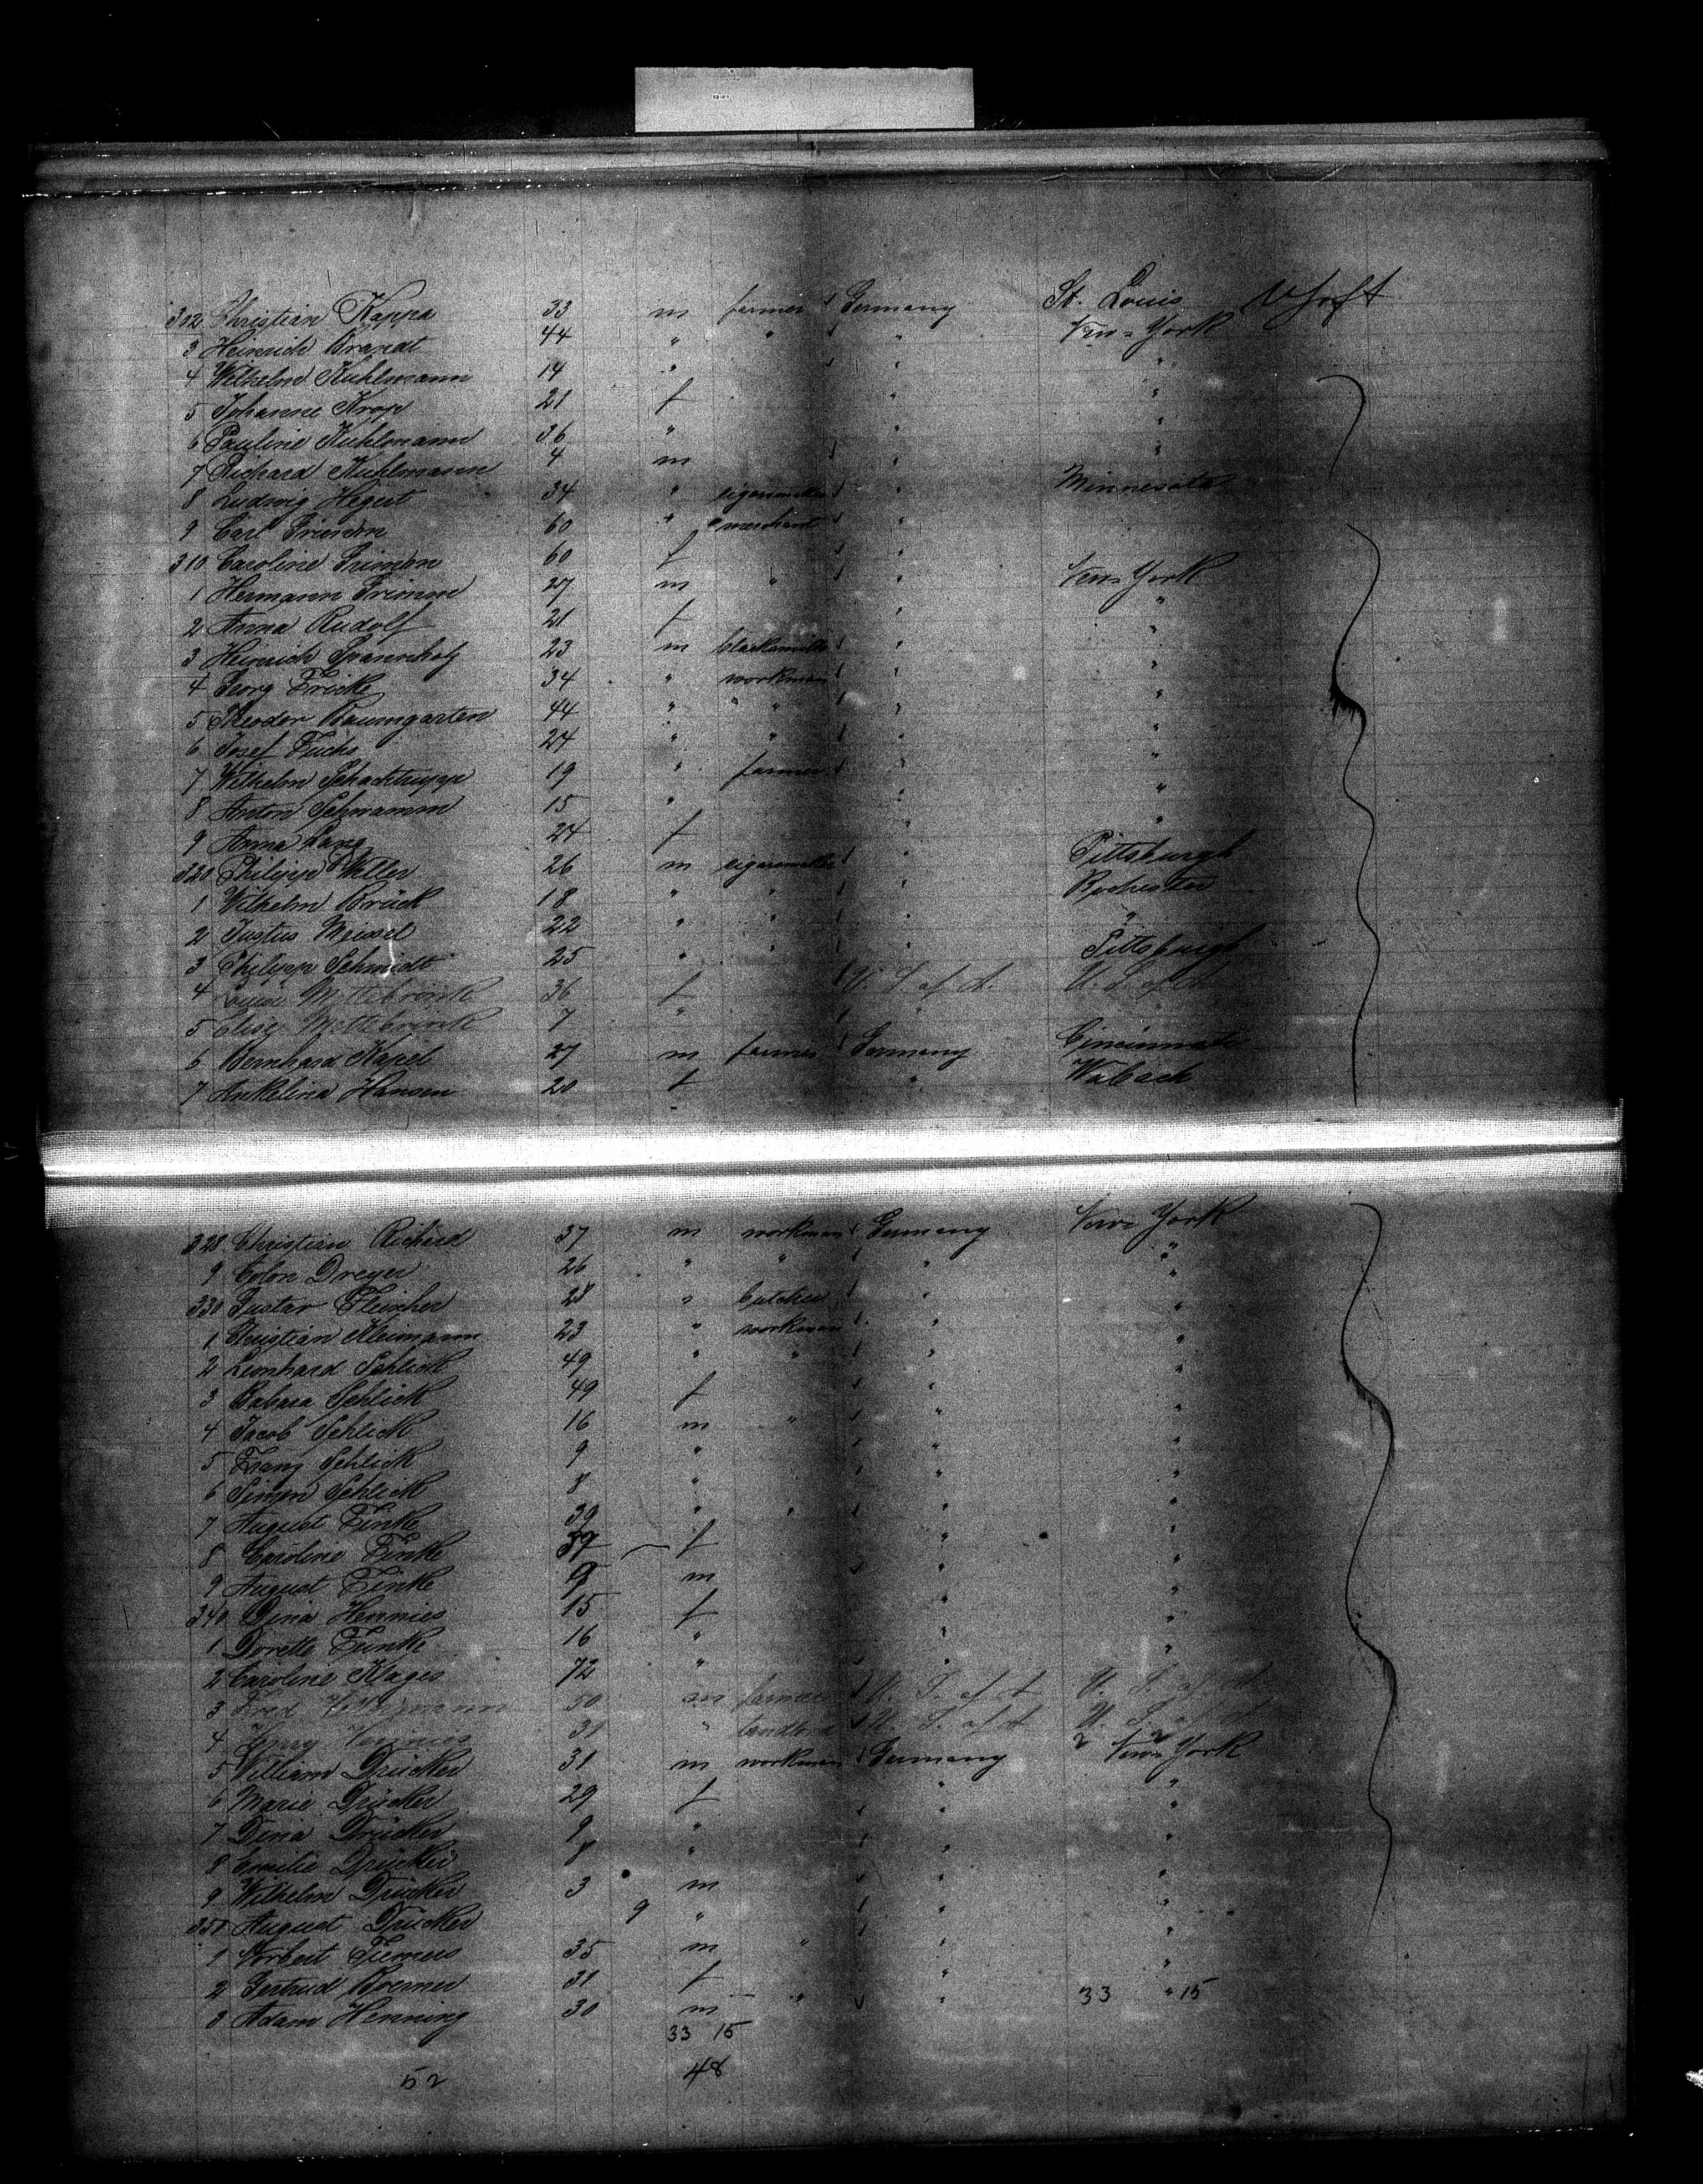 302 Christian Kappa 33 m farmer Germany St. Louis
3 Heinrich Brandt 44 " " " New-York
4 Wilhelm Kuhlmann 14 " " "
5 Johanne Krop 21 f " "
6 Pauline Kuhlmann 36 " " "
7 Richard Kuhlmann 4 m " "
8 Ludwig Hegert 34 " cigarmaker " Minnesota
9 Carl Grimm 60 " merchant "
310 Caroline Grimm 60 f "
1 Hermann Grimm 27 m " " New-York
2 Anna Rudolf 21 f " "
3 Heinrich Spannholz 23 m blacksmith " "
4 Georg Fricke 34 " workman " "
5 Theodor Baumgarten 44 " " " "
6 Josef Fuchs 24 " " " "
7 Wilhelm Schachtrupp 19 " farmer " "
8 Anton Schramm 15 " "
9 Anna Lang 24 f " "
320 Philipp Willer 26 m cigarmaker " Pittsburgh
1 Wilhelm Brück 18 " " " Rochester
2 Justus Meisel 22 " " " "
3 Philipp Schmidt 25 " " Pittsburgh
4 Mettebrink 36 f U. S. of A. U. S. of A.
5 Elise Mettebrink 7 " "
6 Bernhard Kapel 27 m farmer Germany Cincinnati
7 Ankelina Hansen 20 f " Waback
328 Christian Richard 37 m workman Germany New-York
9 Colon Dreyer 26 " " " "
330 Gustav Fleischer 28 " butcher " "
1 Christian Kleimann 23 " workman " "
2 Leonhard Schlick 49 " " " "
3 Babara Schlick 49 f " "
4 Jacob Schlick 16 m " " "
5 Franz Schlick 9 " " "
6 Simon Schlick 8 " " "
7 August Finke 39 " " " "
8 Caroline Finke 37 f " "
9 August Finke 9 m " "
340 Dina Hennies 15 f " "
1 Dorette Funke 16 " " "
2 Caroline Klages 72 " "
3 Fred 50 m farmer U. S. of A U. S. of A
4 31 " U. S. of A U. S. of A
5 William Drücker 31 m workman Germany New-York
6 Marie Drücker 29 f " "
7 Dina Drücker 9 " " "
8 Emilie Drücker 8 " " "
9 Wilhelm Drücker 3 m " "
350 August Drücker 9 " " "
1 Norbert Tiemers 35 m " " "
2 Gertrud Boemer 31 f " "
3 Adam Henning 30 m " " 33 " 15
33 15
52 48